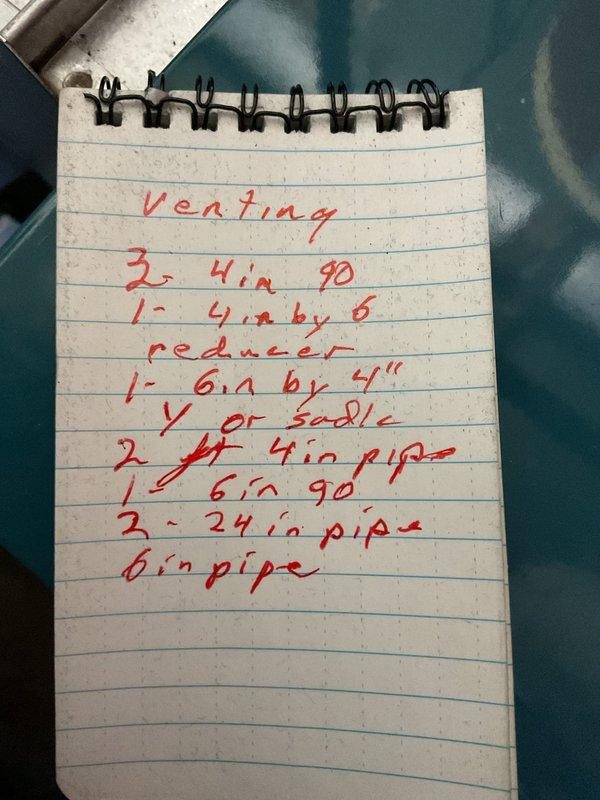 Venting
3- 4in 90
1- 4in by 6
reducer
1- 6in by 4"
Y or sadle
2 ft 4in pipe
1- 6in 90
2- 24 in pipe
6in pipe